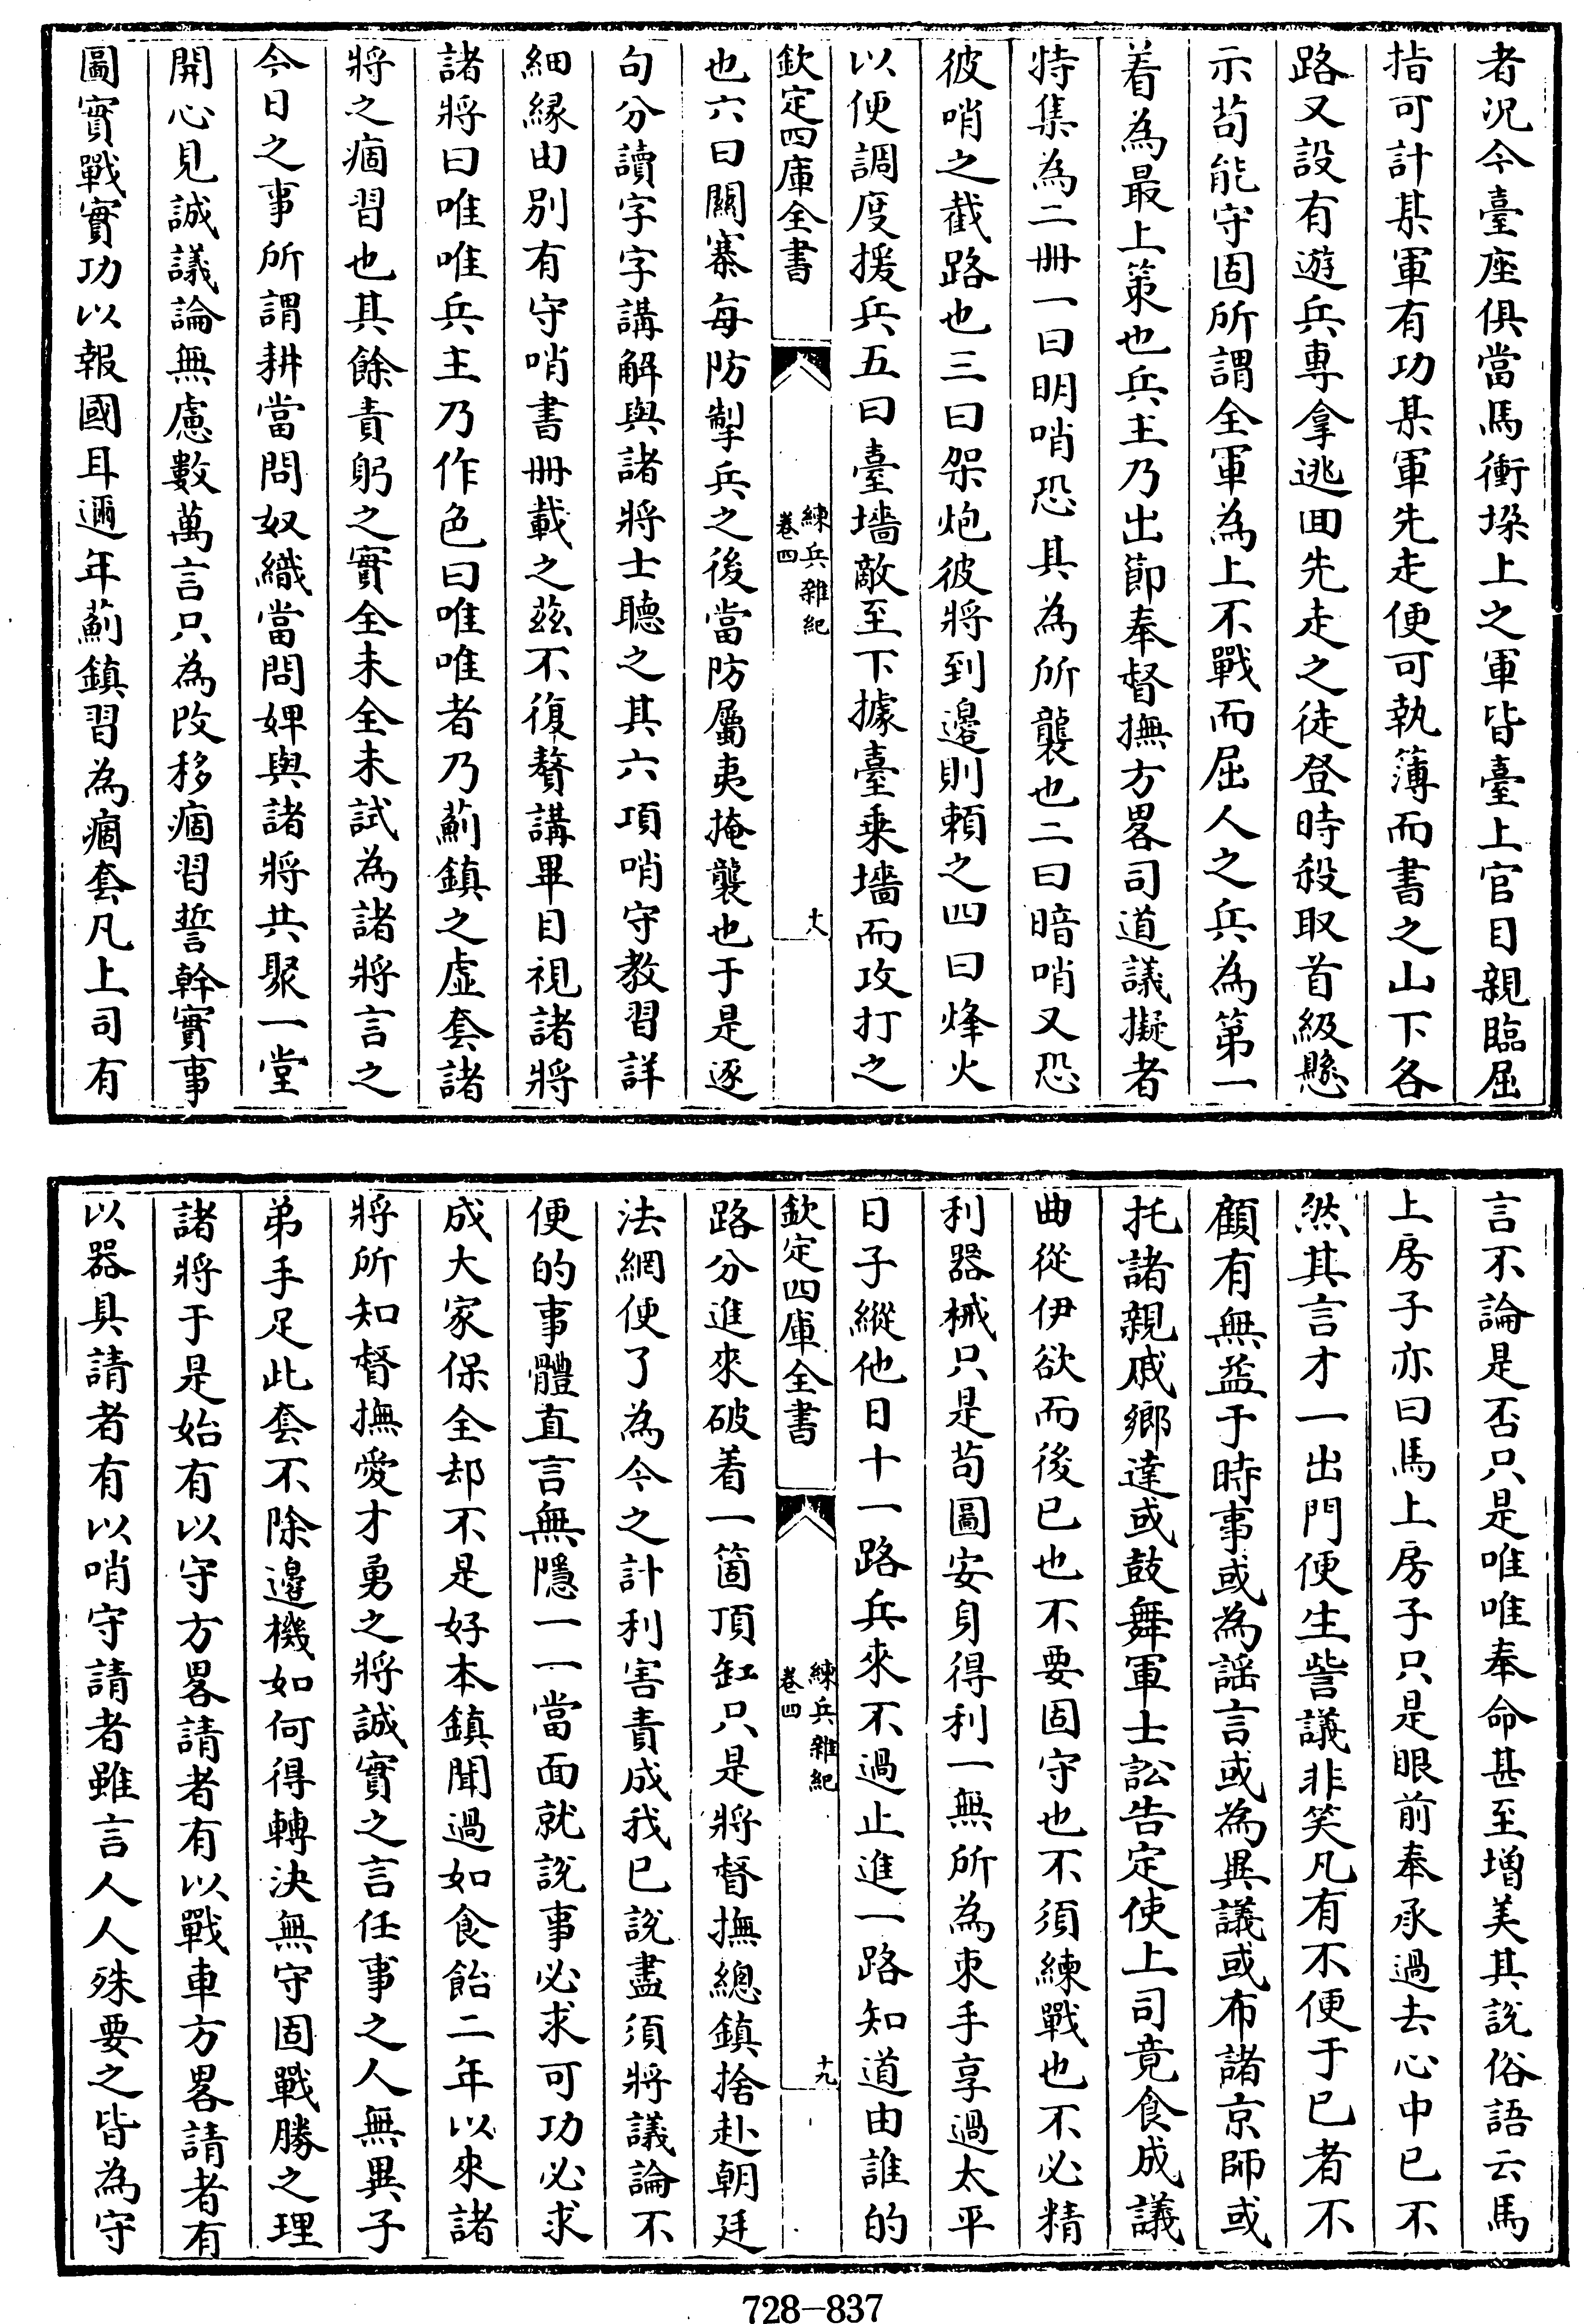 者況今臺座俱當馬衝垜上之軍皆臺上官目親臨屈
指可計某軍有功某軍先走便可執簿而書之山下各
路又設有遊兵專拿逃回先走之徒登時殺取首級懸
示苟能守固所謂全軍為上不戰而屈人之兵為第一
着為最上策也兵主乃出節奉督撫方畧司道議擬者
特集為二冊一曰明哨恐其為所襲也二曰暗哨又恐
彼哨之截路也三曰架炮彼將到邊則賴之四曰烽火
以便調度援兵五曰臺墻敵至下據臺乗墻而攻打之
欽定四庫全書
練兵雜紀
卷四
十八
也六曰關寨每防掣兵之後當防屬夷掩襲也于是逐
句分讀字字講解與諸將士聽之其六項哨守教習詳
細緣由別有守哨書冊載之茲不復贅講畢目視諸將
諸將曰唯唯兵主乃作色曰唯唯者乃薊鎮之虛套諸
將之痼習也其餘責躬之實全未全未試為諸將言之
今日之事所謂耕當問奴織當問婢與諸將共聚一堂
開心見誠議論無慮數萬言只為改移痼習誓幹實事
圖實戰實功以報國耳邇年薊鎮習為痼套凡上司有
言不論是否只是唯唯奉命甚至增美其説俗語云馬
上房子亦曰馬上房子只是眼前奉承過去心中已不
然其言才一出門便生訾議非笑凡有不便于已者不
顧有無益于時事或為謡言或為異議或布諸京師或
托諸親戚鄉達或鼓舞軍士訟告定使上司竟食成議
曲從伊欲而後已也不要固守也不須練戰也不必精
利器械只是苟圖安身得利一無所為束手享過太平
日子縱他日十一路兵來不過止進一路知道由誰的
欽定四庫全書
練兵雜紀
卷四
十九
路分進來破着一箇頂缸只是將督撫總鎮捨赴朝廷
法網便了為今之計利害責成我已説盡須將議論不
便的事體直言無隱一一當面就説事必求可功必求
成大家保全却不是好本鎮聞過如食飴二年以來諸
將所知督撫愛才勇之將誠實之言任事之人無異子
弟手足此套不除邊機如何得轉決無守固戰勝之理
諸將于是始有以守方畧請者有以戰車方畧請者有
以器具請者有以哨守請者雖言人人殊要之皆為守
728－837